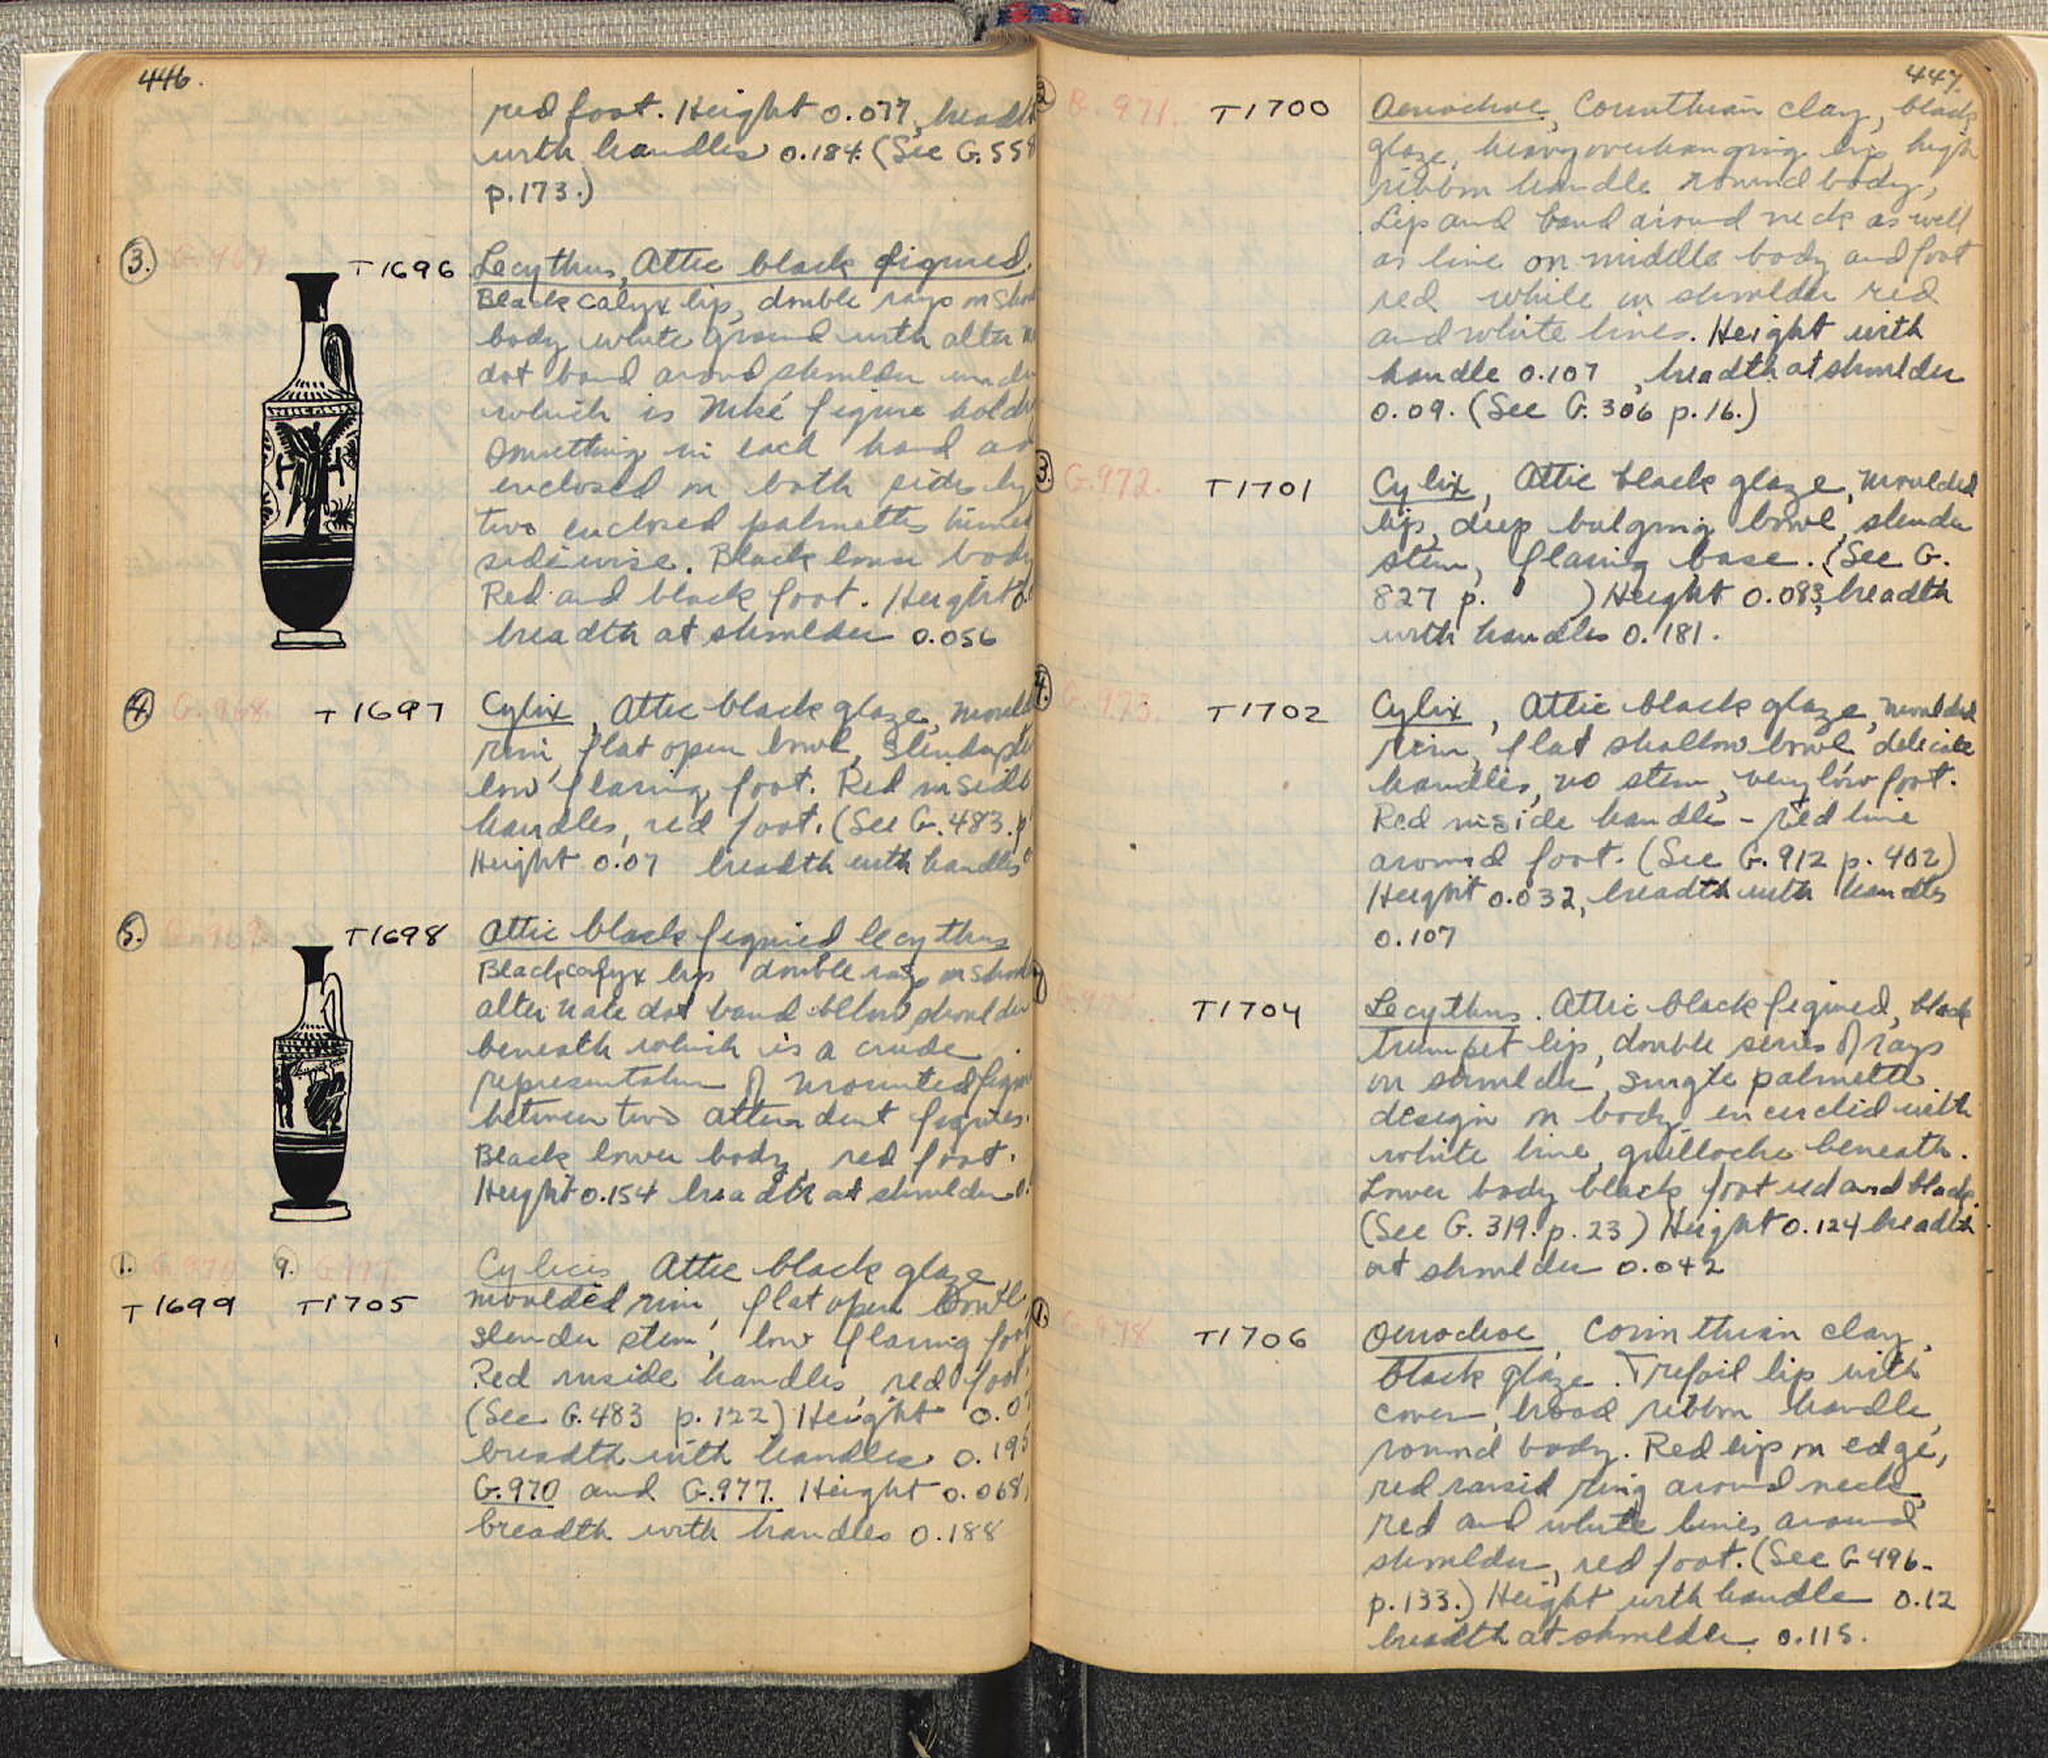 446.
red foot. Height 0.077, breadth
with handles 0.184. (See G. 558
p. 173.)
3. G. 967. T1696 Lecythus, Attic black figured.
Black calyx lip, double rays on
body white ground with
dot band around shoulder
which is Niké figure
something in each hand
enclosed on both sides by
two enclosed palmettes
sidewise. Black lower body
Red and black foot. Height
breadth at shoulder 0.056
4. G. 968. T1697 Cylix, Attic black glaze,
rim, flat open bowl, slender
low flaring foot. Red inside
handles, red foot. (See G. 483. p
Height 0.07 breadth with handles
5. G. 969. T1698 Attic black figured lecythus
Black calyx lip double rays on
alternate dot band below shoulder
beneath which is a crude
representation of mounted
between two attendent figures.
Black lower body, red foot.
Height 0.154 breadth at shoulder 0.
1. G. 970 9. G. 977. Cylices Attic black glaze
T1699 T1705 moulded rim, flat open bowl,
slender stem, low flaring foot
Red inside handles, red foot.
(See G. 483 p. 122) Height 0.0
breadth with handles 0.195
G. 970 and G. 977. Height 0.068,
breadth with handles 0.188
447.
2. G. 971. T1700 Oenochoe, Corinthian clay, black
glaze, heavy overhanging lip, high
ribbon handle round body,
Lip and band around neck as well
as line on middle body and foot
red while on shoulder red
and white lines. Height with
handle 0.107, breadth at shoulder
0.09. (See G. 306 p. 16.)
3. G. 972. T1701 Cylix, Attic black glaze, moulded
lip, deep bulging bowl, slender
stem, flaring base. (See G.
827 p. ) Height 0.083, breadth
with handles 0.181.
4. G. 973. T1702 Cylix, Attic black glaze, moulded
rim, flat shallow bowl, delicate
handles, no stem, very low foot.
Red inside handles - red line
around foot. (See G. 912 p. 402)
Height 0.032, breadth with handles
0.107
T1704 Lecythus. Attic black figured, black
trumpet lip, double series of rays
on shoulder, single palmette
design on body encircled with
white line, guilloche beneath.
Lower body black foot red and black.
(See G. 319. p. 23) Height 0.124 breadth
at shoulder 0.042
1. G. 978 T1706 Oenochoe, Corinthian clay,
black glaze. Trefoil lip with
cover, broad ribbon handle,
round body. Red lip on edge,
red raised ring around neck,
red and white lines around
shoulder, red foot. (See G 496-
p. 133.) Height with handle 0.12
breadth at shoulder 0.115.